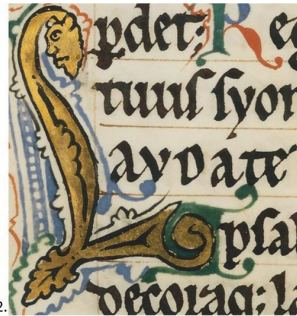 pdet; R e
tuus syon
Laudate
psal
decoraq; la
2.